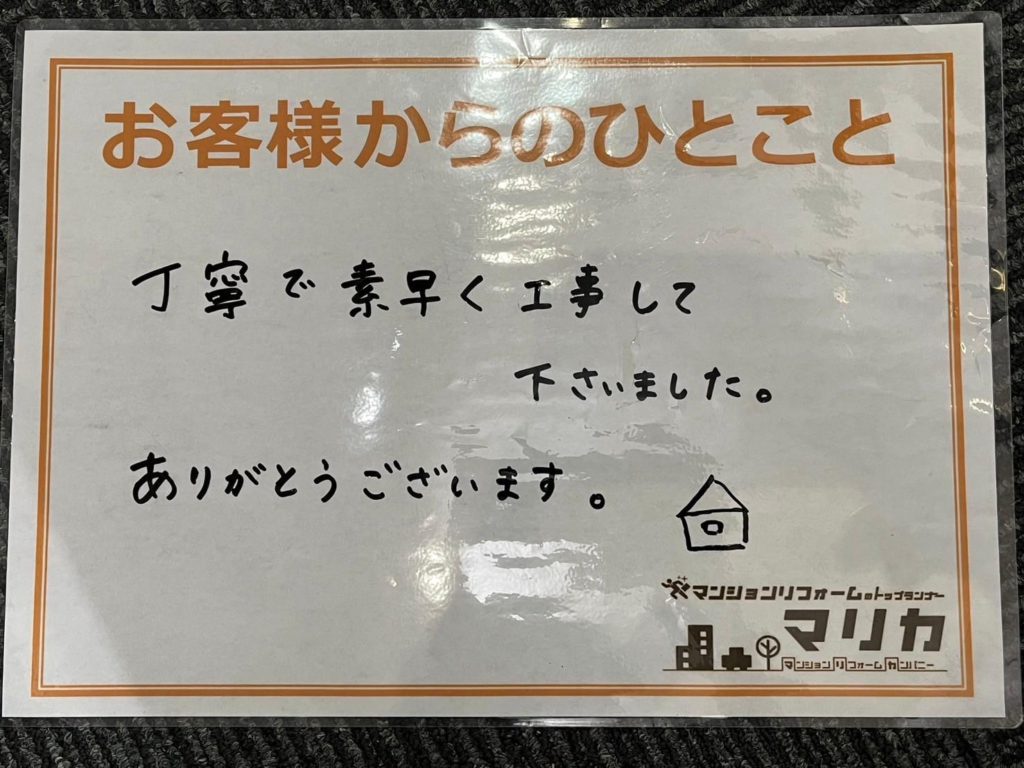 お客様からのひとこと
丁寧で素早く工事して
下さいました。
ありがとうございます。
マンションリフォームのトップランナー
マリカ
マンションリフォームカンパニー